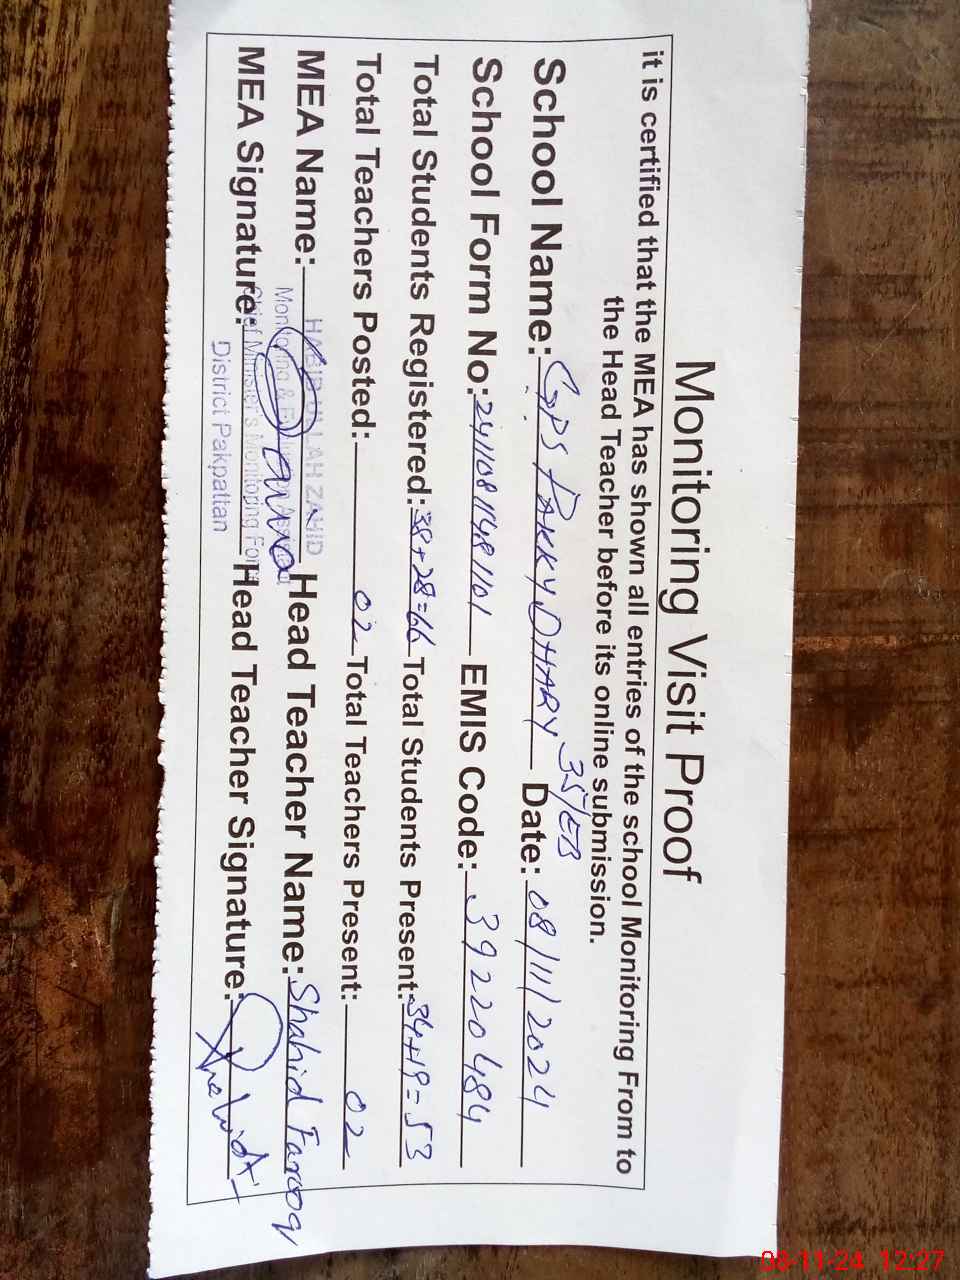 Monitoring Visit Proof
it is certified that the MEA has shown all entries of the school Monitoring From to
the Head Teacher before its online submission.
School Name: GPS PAKKY DHARY 35/EB Date: 08/11/2024
School Form No: 24110811481101 EMIS Code: 39220484
Total Students Registered: 38+28=66 Total Students Present: 34+19=53
Total Teachers Posted: 02 Total Teachers Present: 02
MEA Name: HABIB ULLAH ZAHID Head Teacher Name: Shahid Farooq
Monitoring & Evaluation Assistant
MEA Signature: Head Teacher Signature:
Chief Minister's Monitoring Force
District Pakpattan
08-11-24 12:27